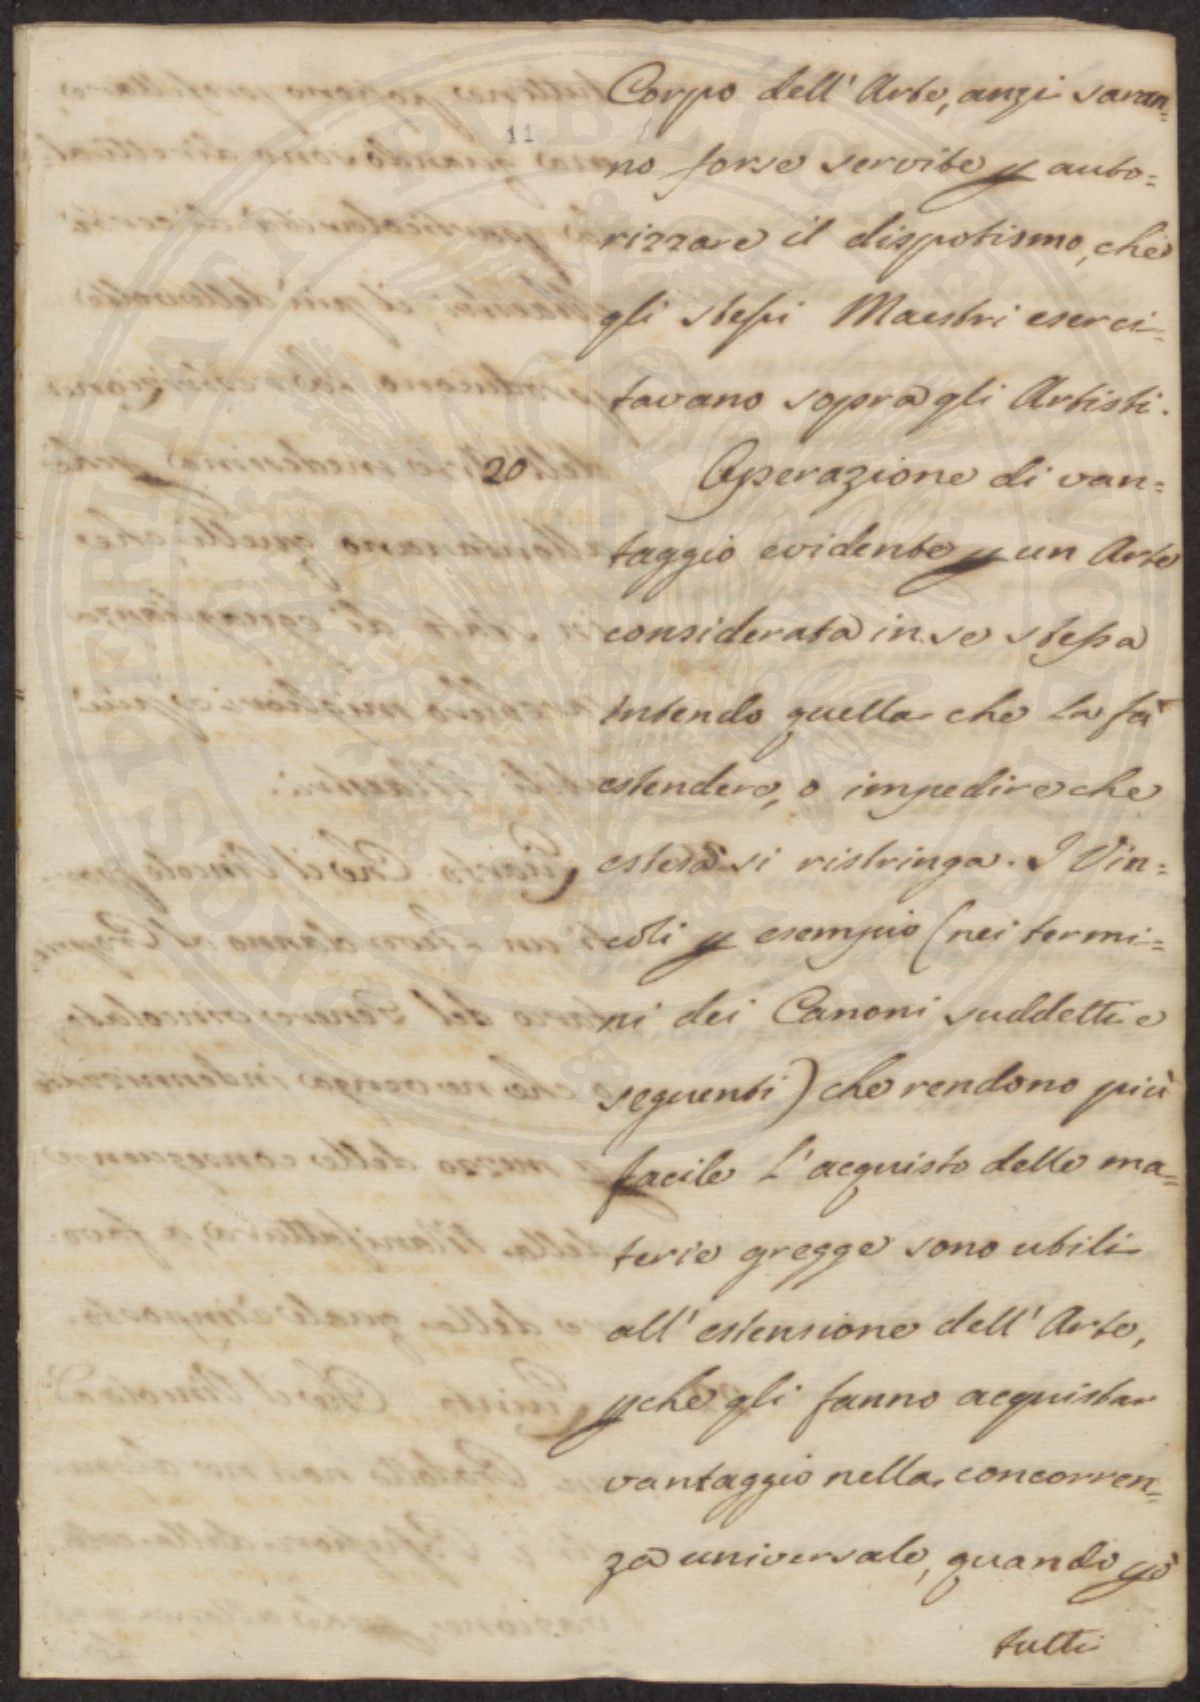 11
Corpo dell' Arte, anzi saran=
no forse servite p auto=
rizzare il dispotismo, che
gli stessi Maestri eserci=
tavano sopra gli Artisti.
20 Operazione di van=
taggio evidente p un Arte
considerata in se stessa
intendo quella che la fà
estendere, o impedire che
estesa si ristringa. I Vin=
coli p esempio (nei termi=
ni dei Canoni suddetti e
seguenti) che rendono più
facile l' acquisto delle ma=
terie gregge sono utili
all' estensione dell' Arte,
pche gli fanno acquistar
vantaggio nella concorren=
za universale, quando pò
tutti